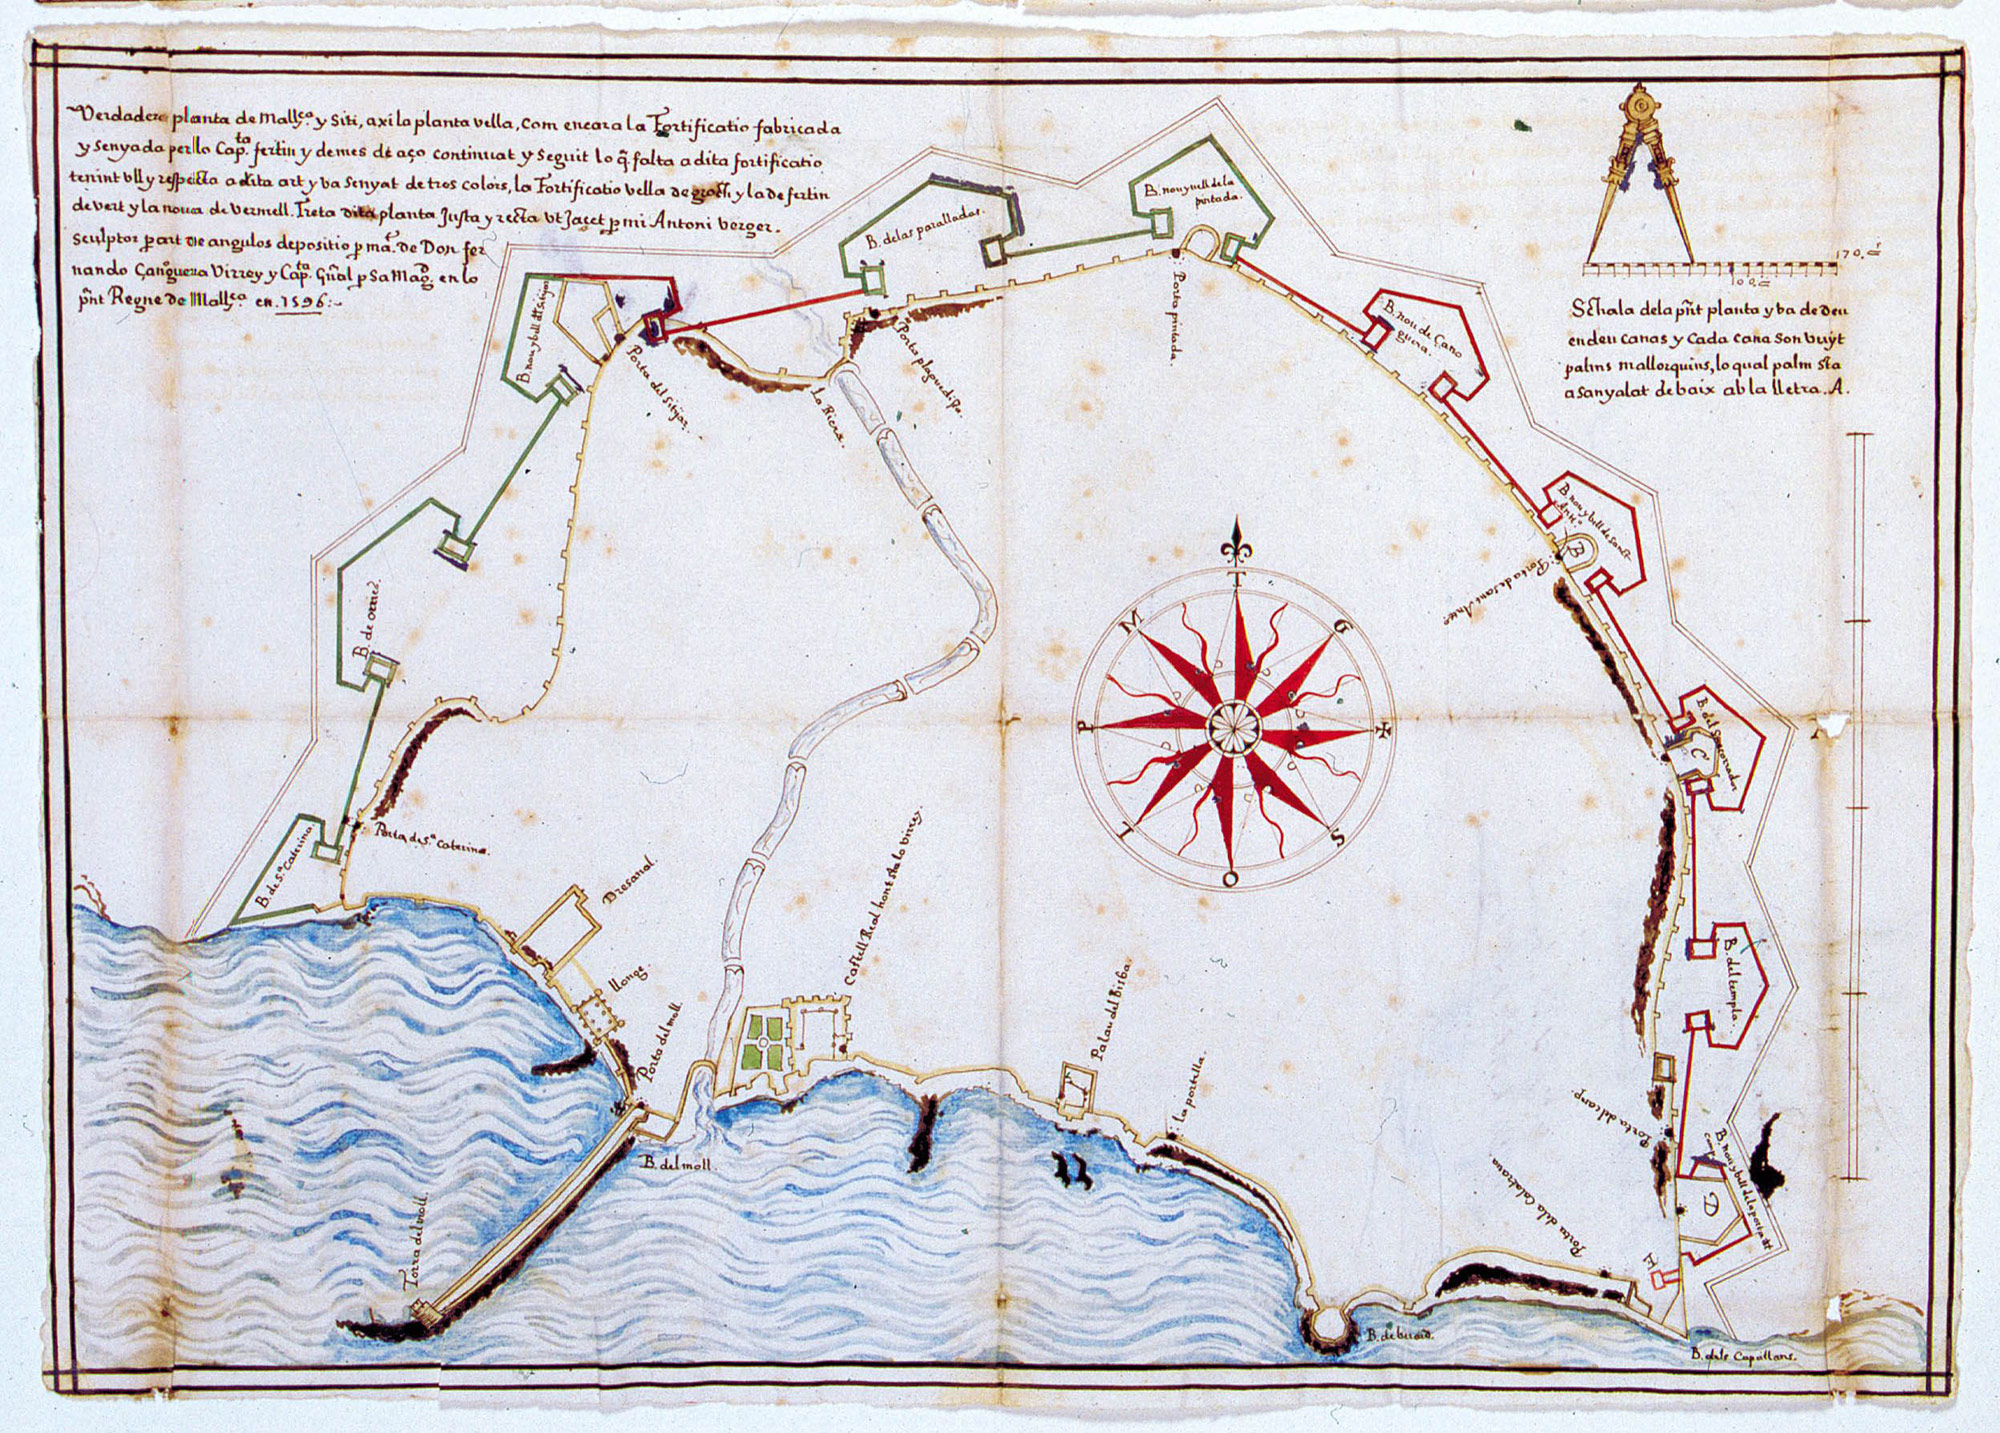 Verdadera planta de Mallca. y Siti, axi la planta vella, com encara la Fortificatio fabricada
y senyada per llo Capta. fertin y demes de aço continuat y seguit lo q̃ falta a dita fortificatio
tenint ull y respecta a dita art y va senyat de tres colors, la Fortificatio vella de groch y la de fertin
de vert y la nova de vermell. Treta dita planta Justa y recta ut Jacet p mi Antoni verger.
Sculptor p art de angulos de positio p ma. de Don fer
nando Çanoguera Virrey y Capta. Gñal p Sa Magd. en lo
pñt Regne de Mallca. en. 1596:-
170.
100.
Schala dela pñt planta y va de deu
en deu canas y Cada cana son vuyt
palms mallorquins, lo qual palm sta
asanyalat de baix ab la lletra. A.
B. nou y vell de la
pintada.
B. de las paralladas.
B. nou y vell dt. Sitjar
Porta del Sitjar.
La Riera.
Porta plaguediza.
Porta pintada.
B. nou de Çano
guera.
B. nou y vell de sanct
Anto.
B
Porta de sant Anto.
B. de orries.
B. del Socorrador
C
B. de Sa. Caterina
Porta de Sa. Caterina.
Dresanal.
llonge.
Porta del moll.
Castell Real hont sta lo virrey.
Palau del Bisba.
la portella.
B. del temple.
Porta del camp.
B. nou y vell dela porta dt
camp
D
Porta dela Calatrava
B. del moll.
Torra del moll.
B. de beuard.
B. dels Capellans.
T
G
S
O
L
P
M